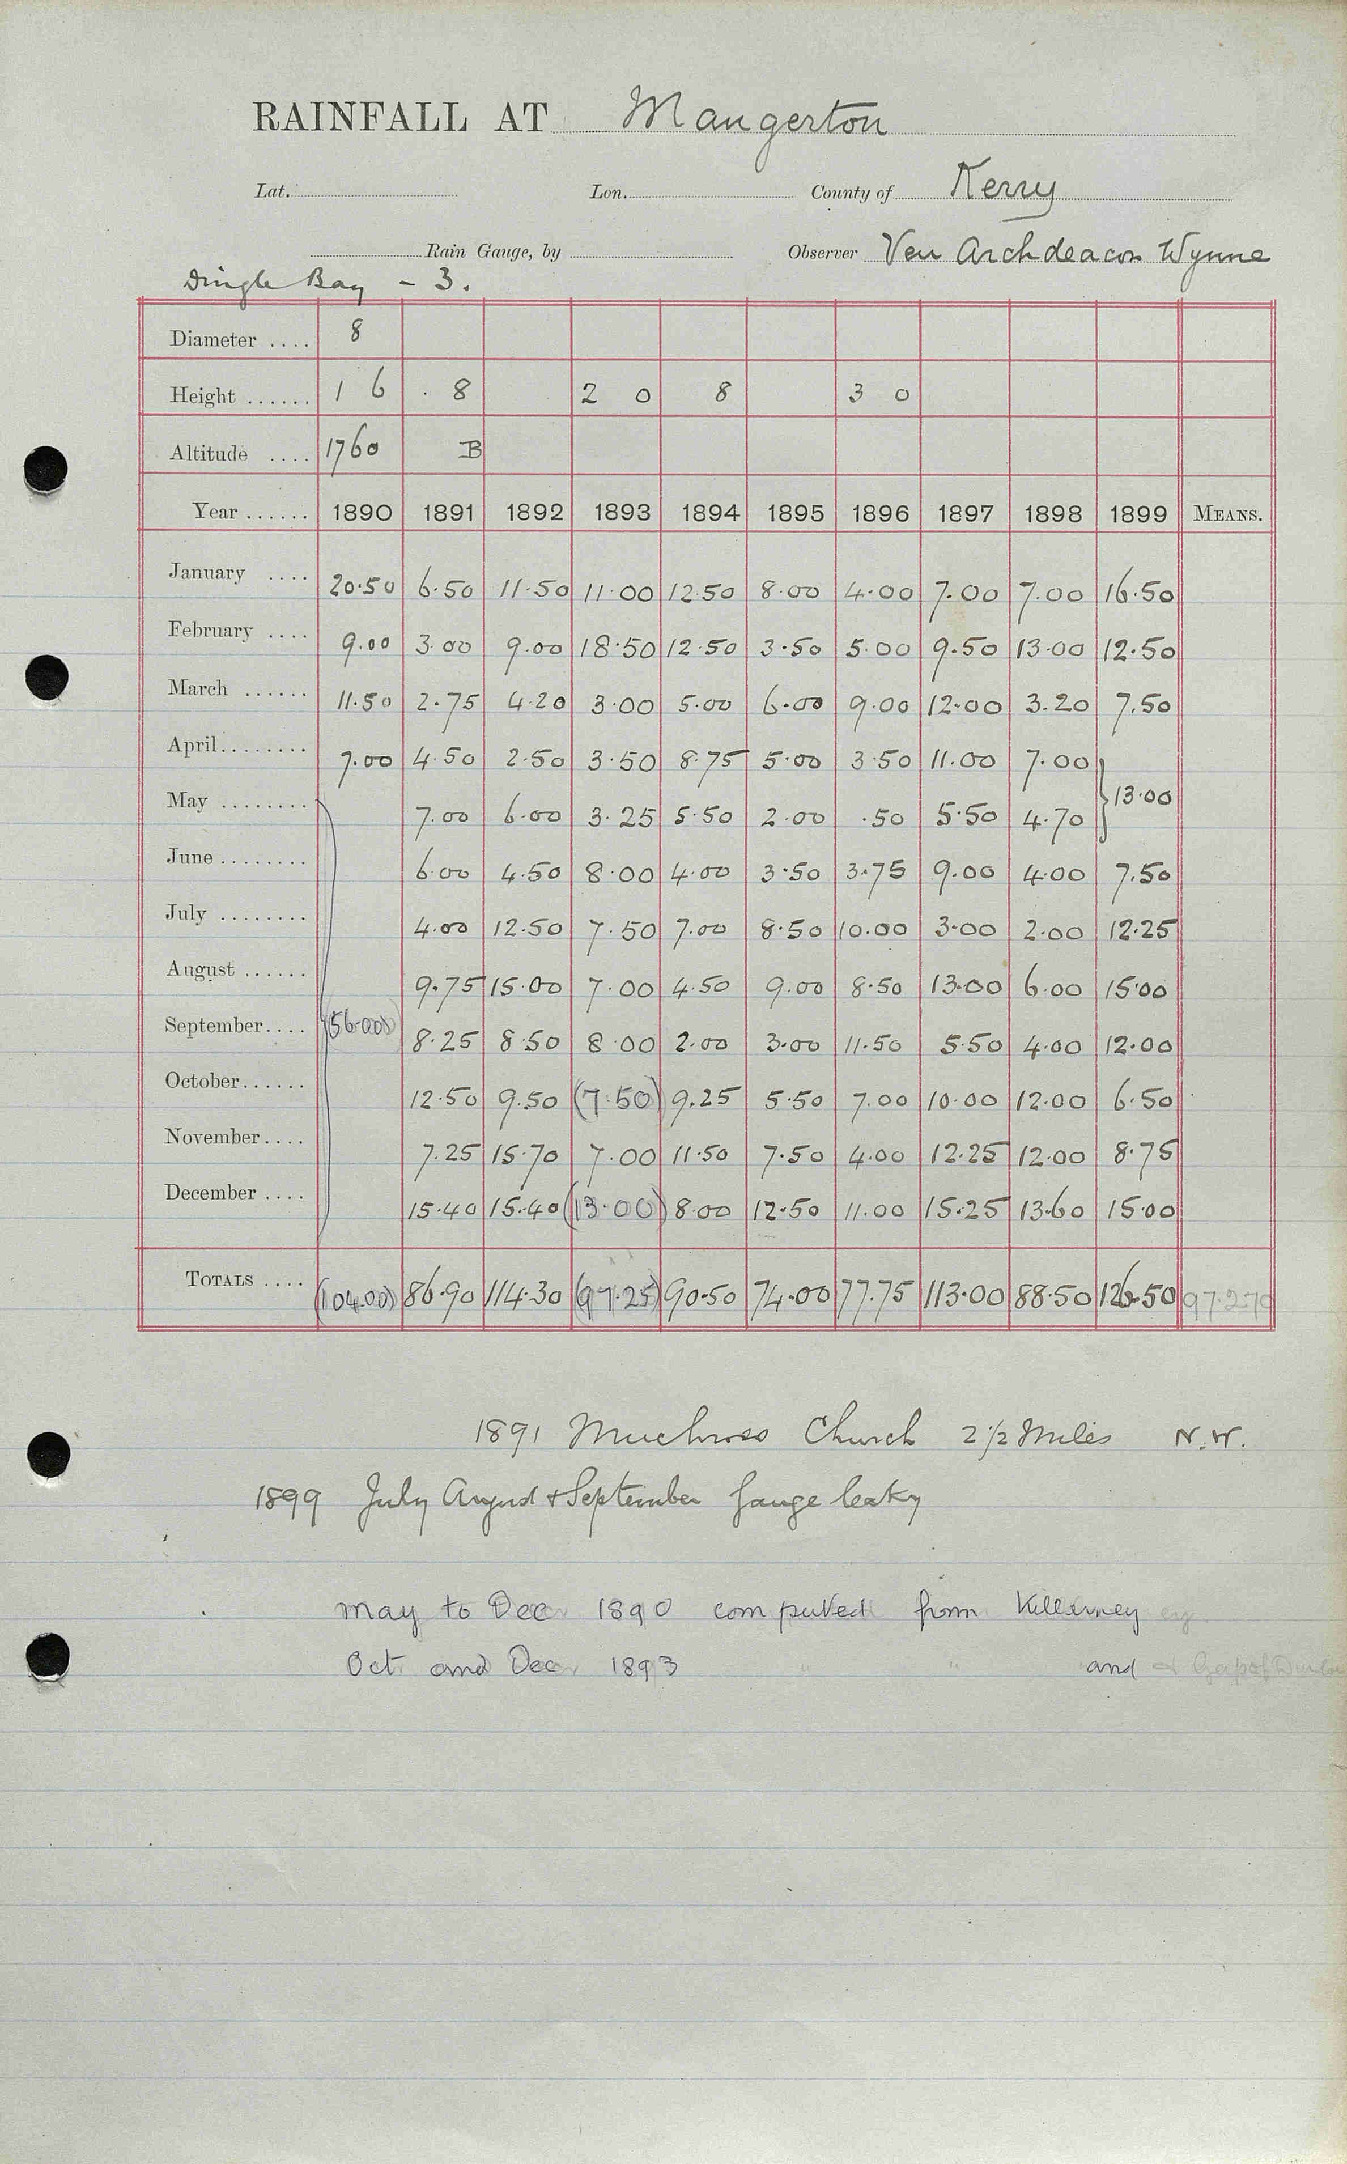 RAINFALL AT Mangerton
Lat. Lon. County of Kerry
Rain Gauge, by Observer Ven Archdeacon Wynne
Dingle Bay - 3.
Diameter .... 8
Height ...... 1 6 . 8 2 0 8 3 0
Altitude .... 1760 B
Year ...... 1890 1891 1892 1893 1894 1895 1896 1897 1898 1899 MEANS.
January .... 20.50 6.50 11.50 11.00 12.50 8.00 4.00 7.00 7.00 16.50
February .... 9.00 3.00 9.00 18.50 12.50 3.50 5.00 9.50 13.00 12.50
March ...... 11.50 2.75 4.20 3.00 5.00 6.00 9.00 12.00 3.20 7.50
April........ 7.00 4.50 2.50 3.50 8.75 5.00 3.50 11.00 7.00
May ........ 7.00 6.00 3.25 5.50 2.00 .50 5.50 4.70 } 13.00
June ........ 6.00 4.50 8.00 4.00 3.50 3.75 9.00 4.00 7.50
July ........ 4.00 12.50 7.50 7.00 8.50 10.00 3.00 2.00 12.25
August ...... 9.75 15.00 7.00 4.50 9.00 8.50 13.00 6.00 15.00
September.... (56.00) 8.25 8.50 8.00 2.00 3.00 11.50 5.50 4.00 12.00
October...... 12.50 9.50 (7.50) 9.25 5.50 7.00 10.00 12.00 6.50
November.... 7.25 15.70 7.00 11.50 7.50 4.00 12.25 12.00 8.75
December .... 15.40 15.40 (13.00) 8.00 12.50 11.00 15.25 13.60 15.00
TOTALS .... (104.00) 86.90 114.30 (97.25) 90.50 74.00 77.75 113.00 88.50 126.50 97.270
1891 Muckross Church 2 1/2 Miles N.W.
1899 July August + September gauge leaky
May to Dec 1890 computed from Killarney
Oct and Dec 1893 " " and & Gap of Dunloe